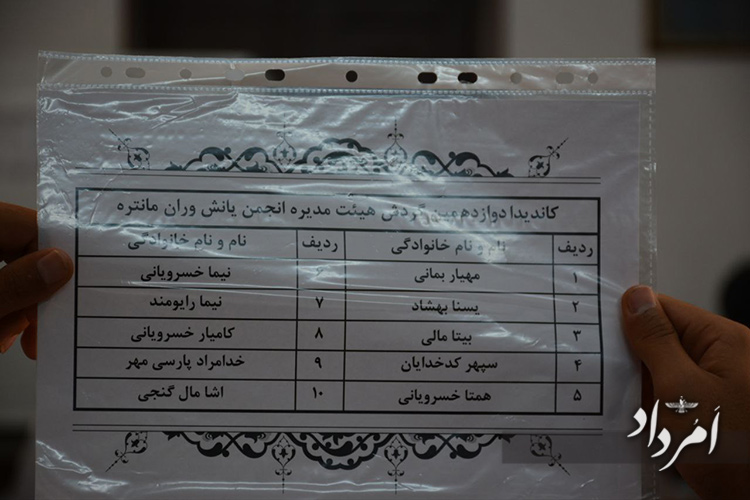 کاندیدا دوازدهمین گردش هیئت مدیره انجمن یانش وران مانتره
ردیف نام و نام خانوادگی ردیف نام و نام خانوادگی
۱ مهیار بمانی ۶ نیما خسرویانی
۲ یسنا بهشاد ۷ نیما رایومند
۳ بیتا مالی ۸ کامیار خسرویانی
۴ سپهر کدخدایان ۹ خدامراد پارسی مهر
۵ همتا خسرویانی ۱۰ اشا مال گنجی
اَمُرداد